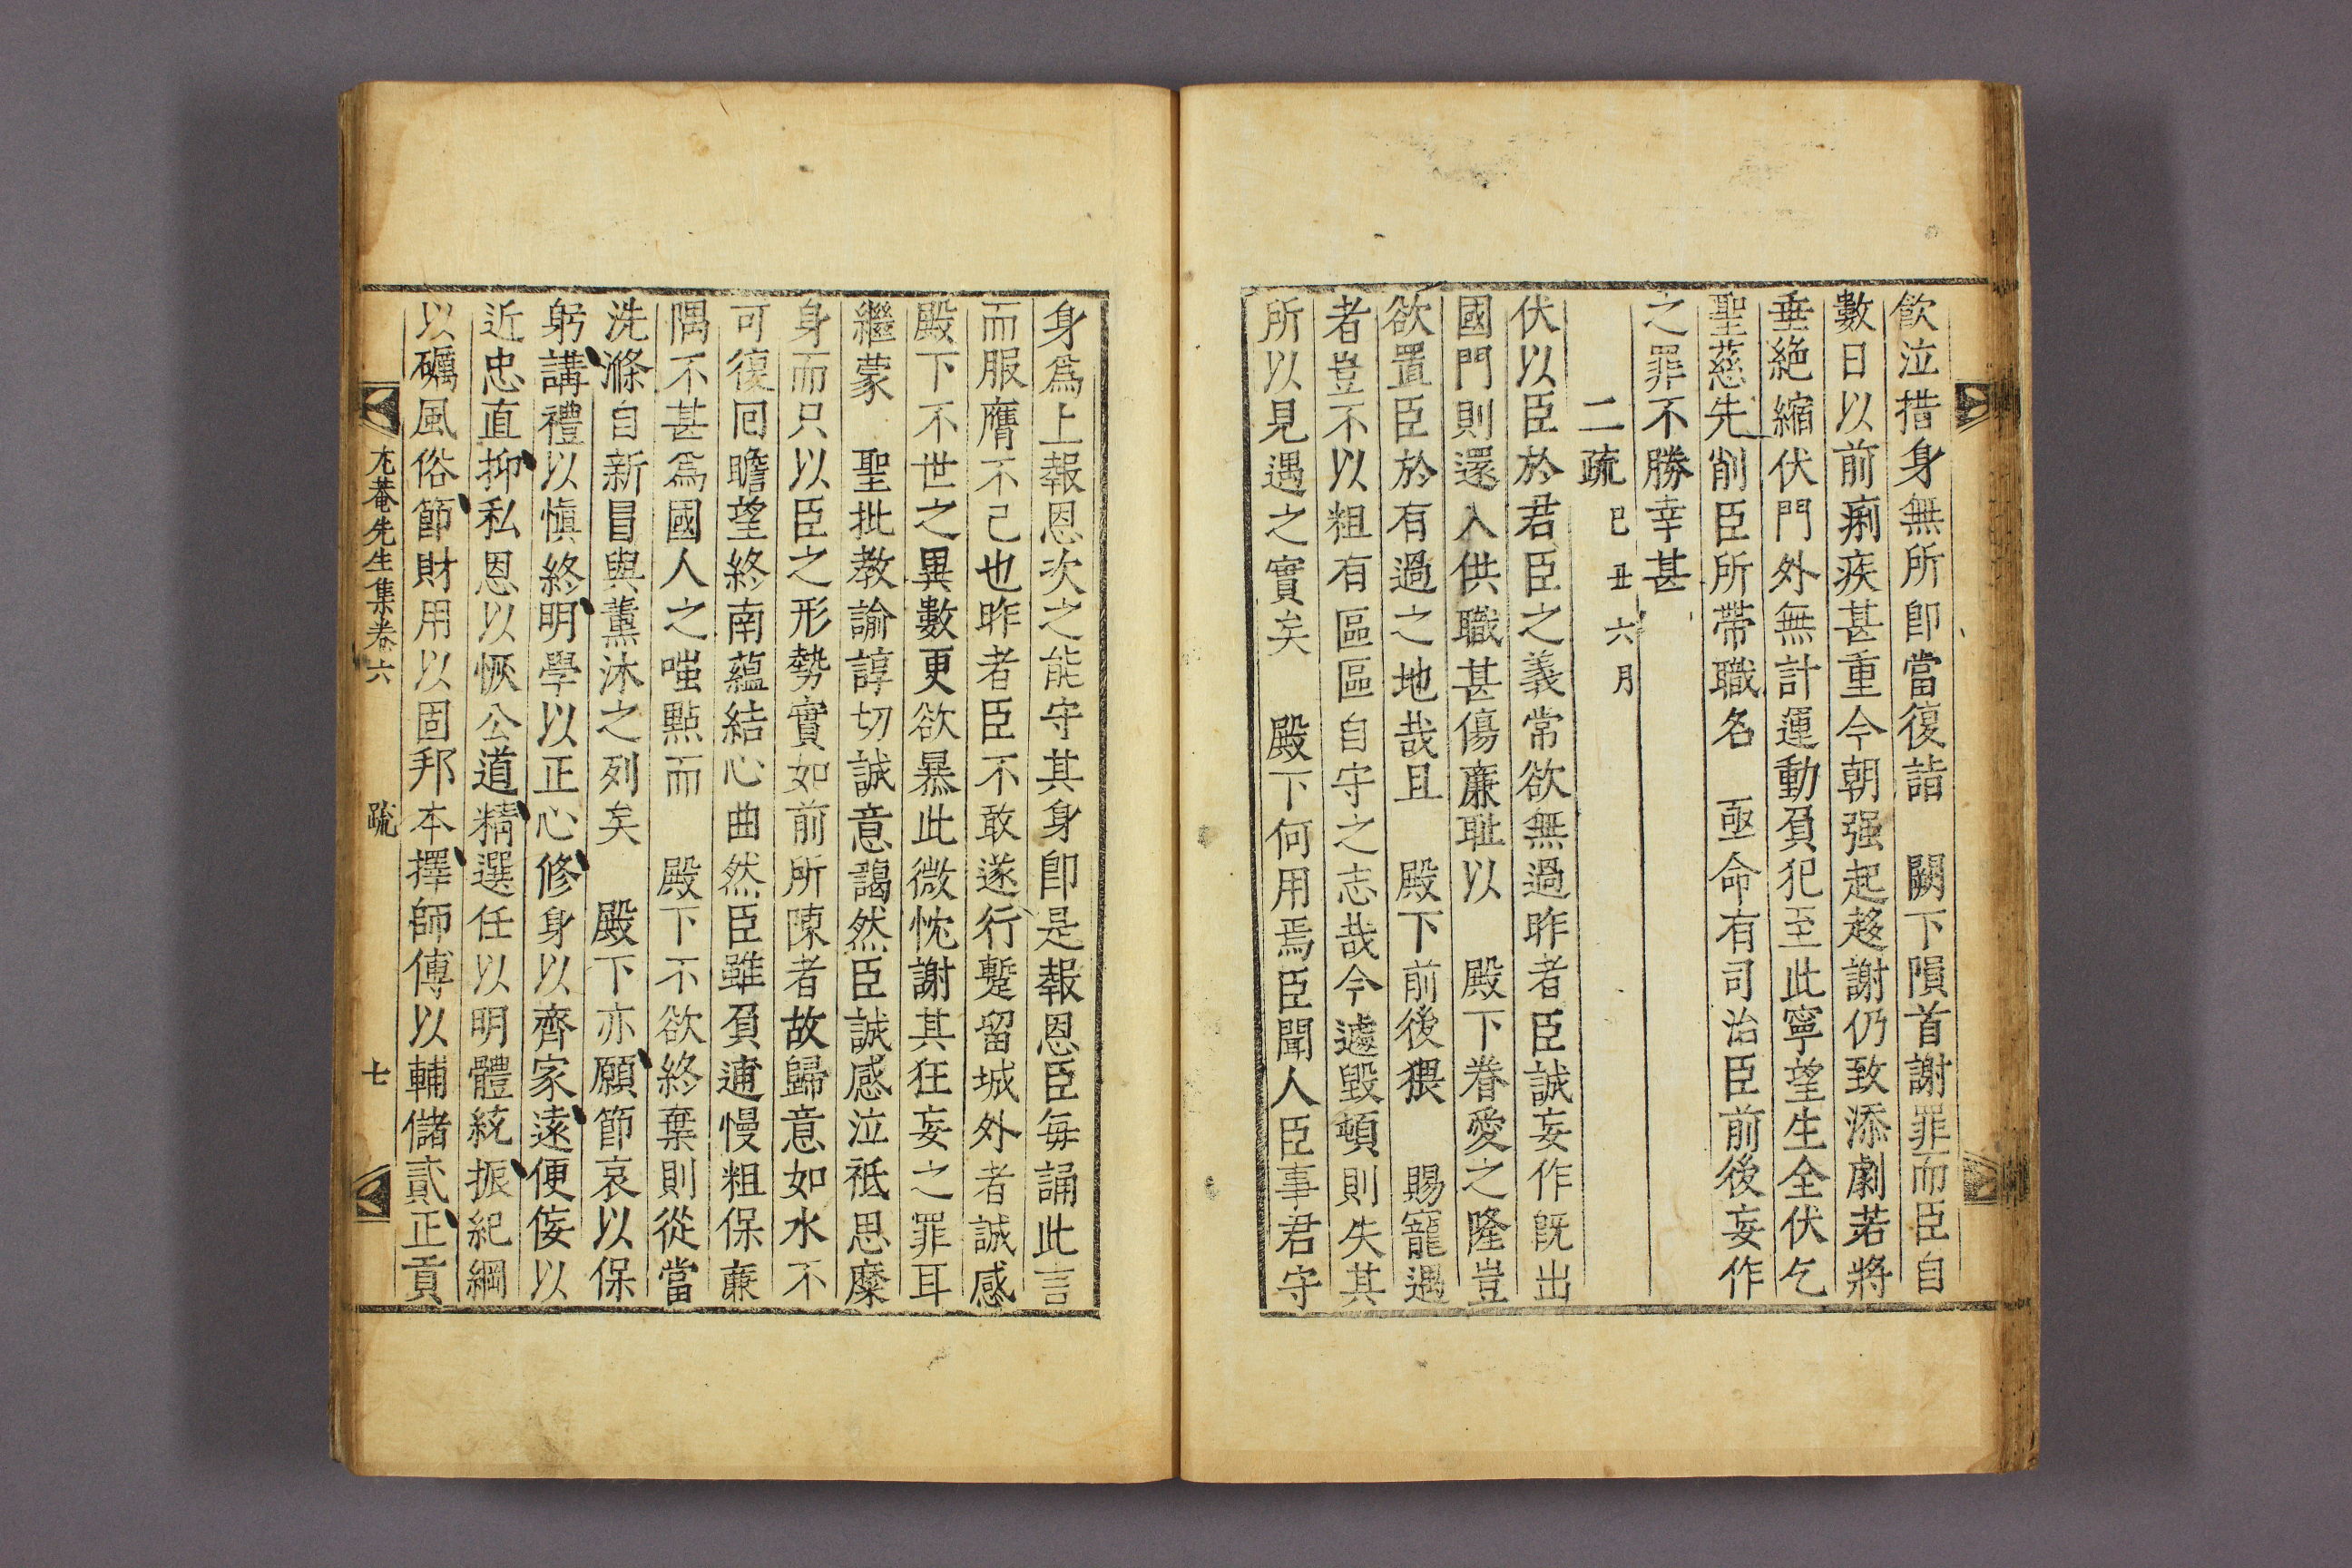 飮泣措身無所卽當復詣 闕下隕首謝罪而臣自
數日以前痢疾甚重今朝强起趍謝仍致添劇若將
垂絶縮伏門外無計運動負犯至此寧望生全伏乞
聖慈先削臣所帶職名 亟命有司治臣前後妄作
之罪不勝幸甚
二疏 巳丑六月
伏以臣於君臣之義常欲無過昨者臣誠妄作旣出
國門則還入供職甚傷廉耻以 殿下眷愛之隆豈
欲置臣於有過之地哉且 殿下前後猥 賜寵遇
者豈不以粗有區區自守之志哉今遽毀頓則失其
所以見遇之實矣 殿下何用焉臣聞人臣事君守
身爲上報恩次之能守其身卽是報恩臣每誦此言
而服膺不己也昨者臣不敢遂行蹔留城外者誠感
殿下不世之異數更欲暴此微忱謝其狂妄之罪耳
繼蒙 聖批教諭諄切誠意藹然臣誠感泣祗思糜
身而只以臣之形勢實如前所陳者故歸意如水不
可復囘瞻望終南蘊結心曲然臣雖負逋慢粗保廉
隅不甚爲國人之嗤點而 殿下不欲終棄則從當
洗滌自新冐與薰沐之列矣 殿下亦願節哀以保
躬講禮以愼終明學以正心修身以齊家遠便佞以
近忠直抑私恩以恢公道精選任以明體統振紀綱
以礪風俗節財用以固邦本擇師傅以輔儲貳正貢
尤菴先生集卷六 疏 七